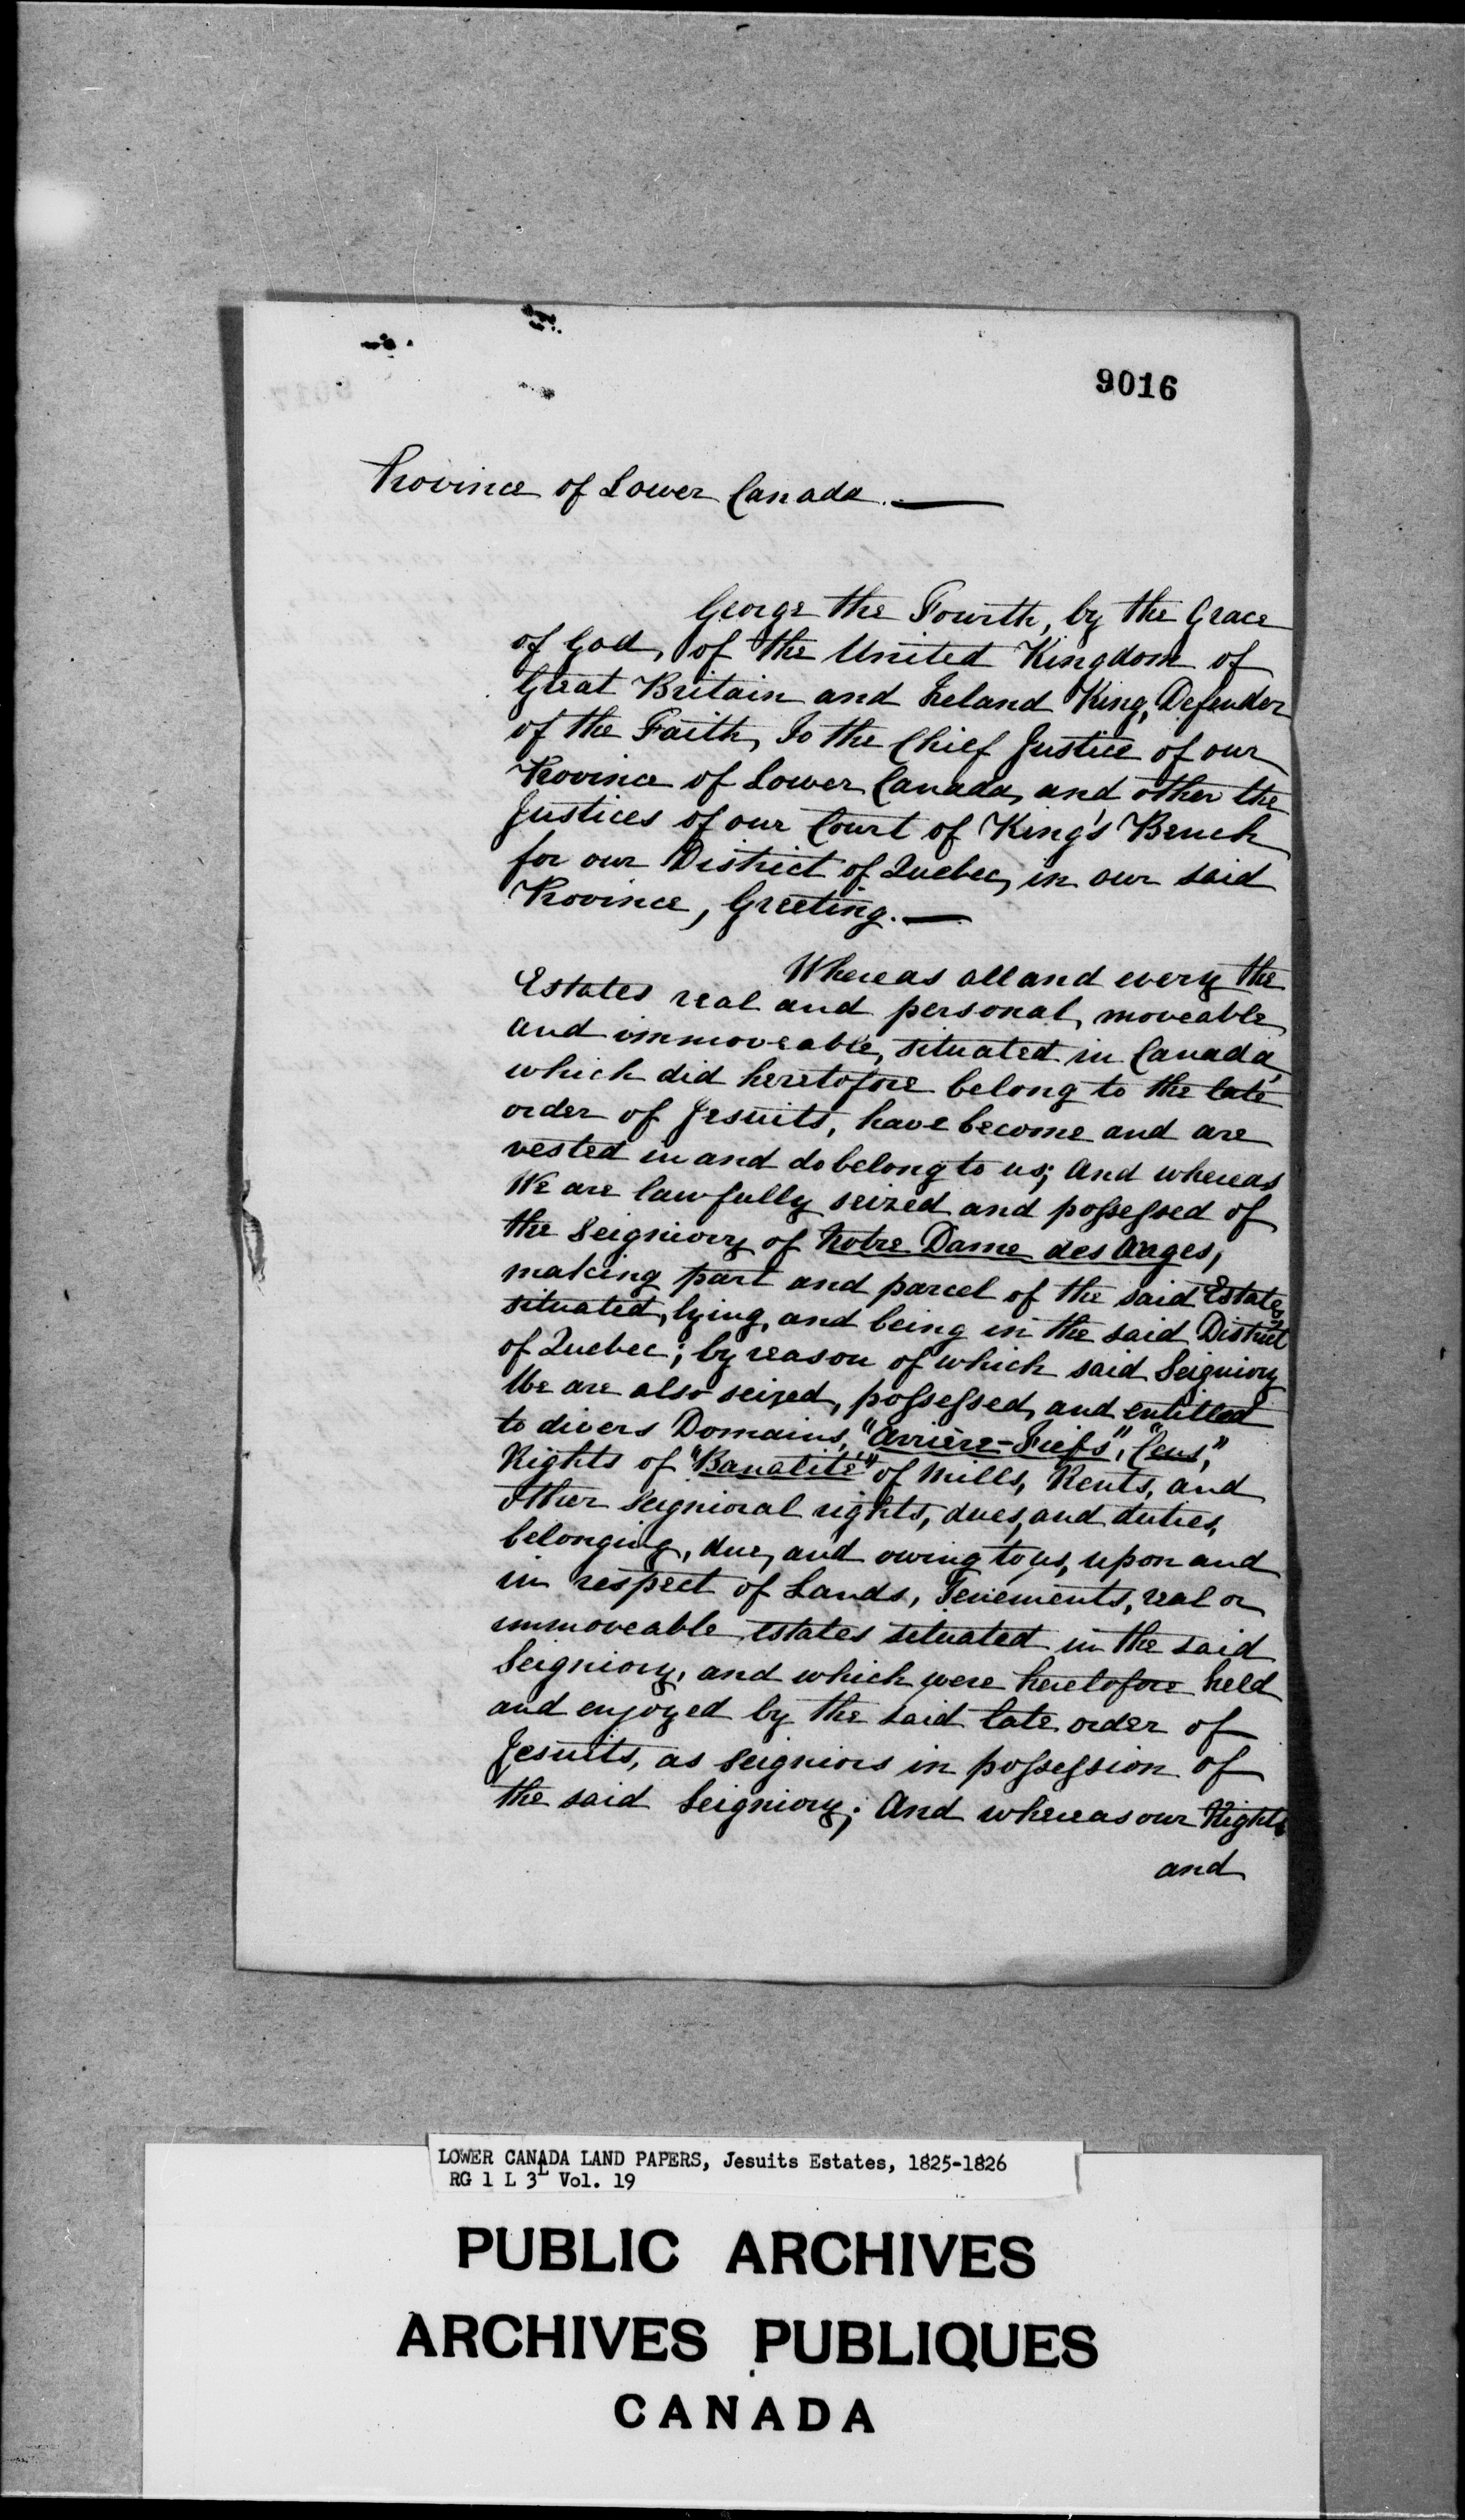 9016
Province of Lower Canada. —
George the Fourth, by the Grace
of God, of the United Kingdom of
Great Britain and Ireland King, Defender
of the Faith, To the Chief Justice of our
Province of Lower Canada, and other the
Justices of our Court of King's Bench
for our District of Quebec, in our said
Province, Greeting. —
Whereas all and every the
Estates real and personal, moveable
and immoveable, situated in Canada,
which did heretofore belong to the late
order of Jesuits, have become and are
vested in and do belong to us; And whereas
We are lawfully seized and possessed of
the Seigniory of Notre Dame des Anges,
making part and parcel of the said Estates
situated, lying, and being in the said District
of Quebec; by reason of which said Seigniory
We are also seized, possessed, and entitled
to divers Domains, "Arrière-Fiefs", "Cens,"
Rights of "Banalité" of Mills, Rents, and
other seignioral rights, dues, and duties,
belonging, due, and owing to us, upon and
in respect of Lands, Tenements, real or
immoveable estates situated in the said
Seigniory, and which were heretofore held
and enjoyed by the said late order of
Jesuits, as Seigniors in possession of
the said Seigniory; And whereas our Rights
and
LOWER CANADA LAND PAPERS, Jesuits Estates, 1825-1826
RG 1 L 3L Vol. 19
PUBLIC ARCHIVES
ARCHIVES PUBLIQUES
CANADA